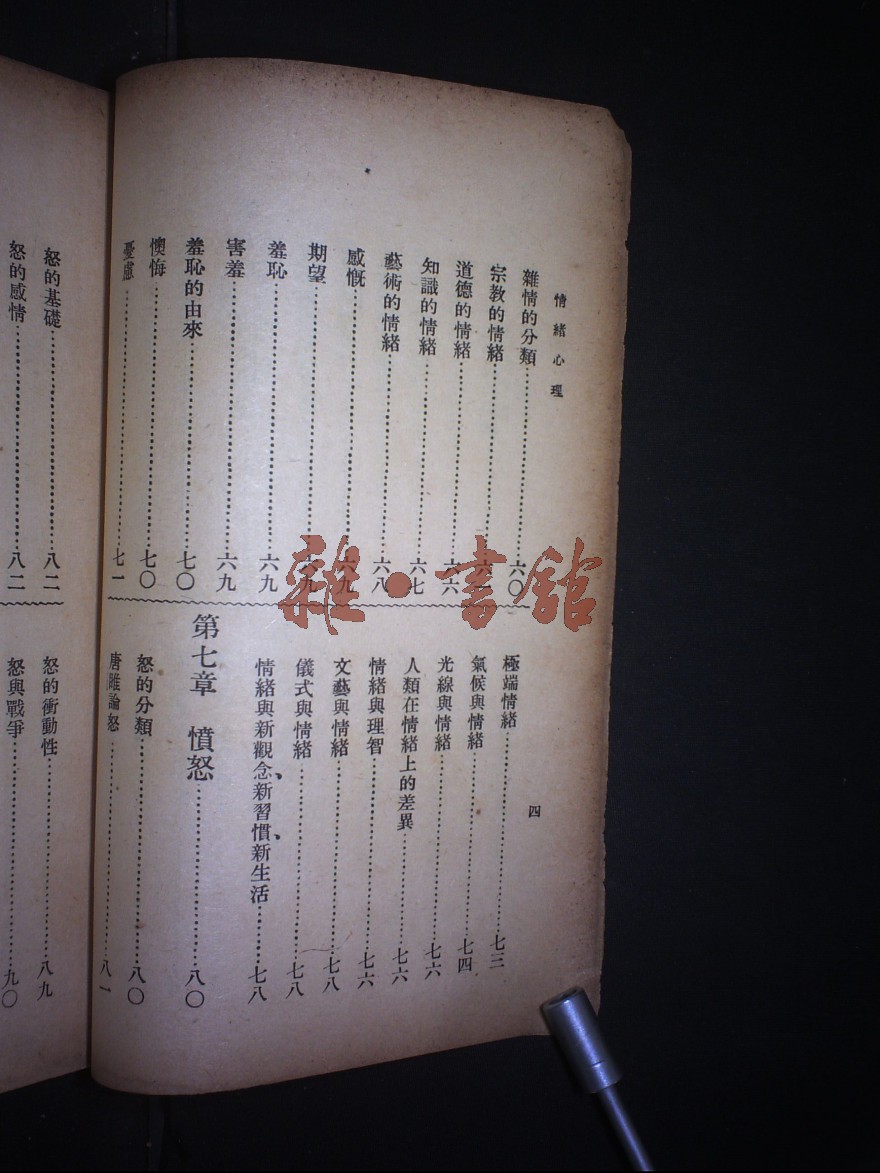 情緒心理
四
雜情的分類……六〇
宗教的情緒……六一
道德的情緒……六六
知識的情緒……六七
藝術的情緒……六八
感慨……六九
期望……六九
羞恥……六九
害羞……六九
羞恥的由來……七〇
懊悔……七〇
憂慮……七一
極端情緒……七三
氣候與情緒……七四
光線與情緒……七六
人類在情緒上的差異……七六
情緒與理智……七六
文藝與情緒……七八
儀式與情緒……七八
情緒與新觀念、新習慣、新生活……七八
第七章 憤怒……八〇
怒的分類……八〇
唐雎論怒……八一
怒的基礎……八二
怒的感情……八二
怒的衝動性……八九
怒與戰爭……九〇
雜·書館